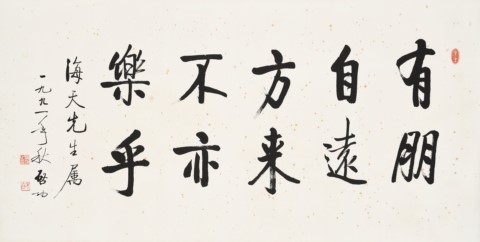 有朋
自遠
方来
不亦
樂乎
海天先生属
一九九一年秋 啓功